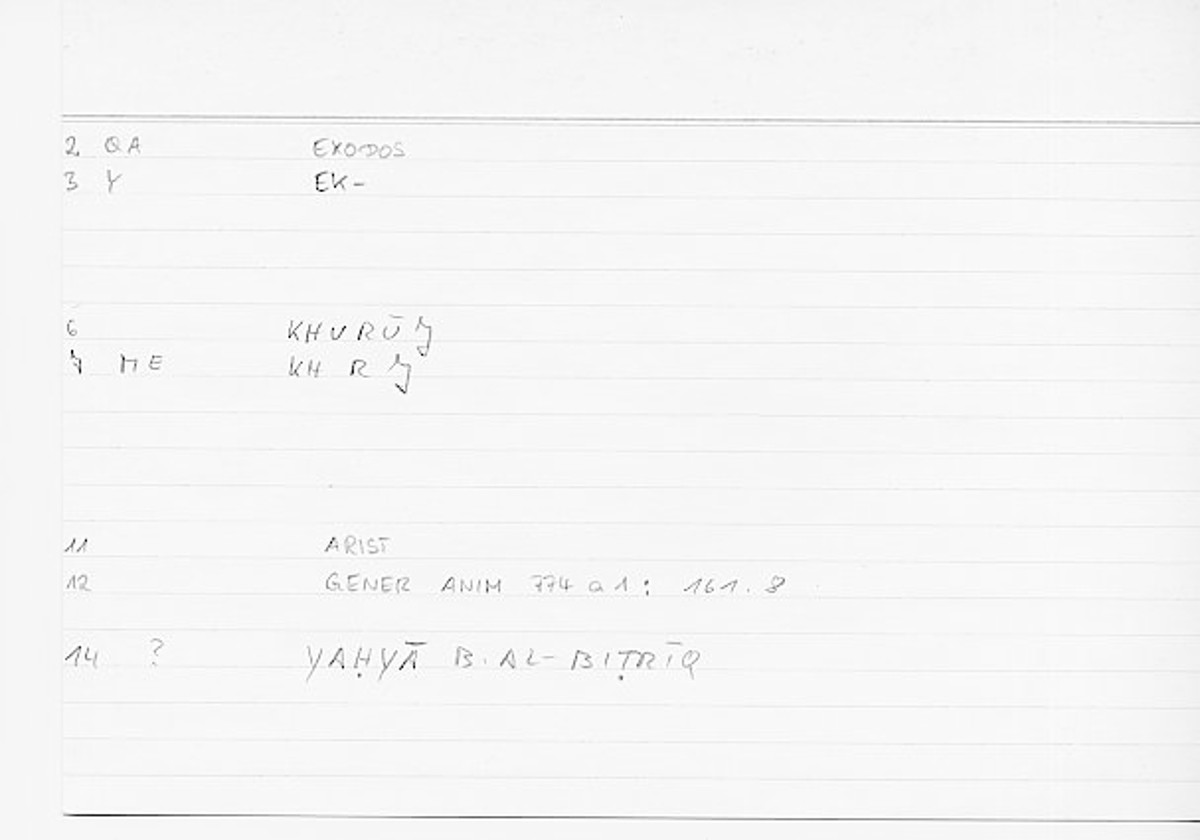 2 QA EXODOS
3 Y EK-
6 KHURŪJ
7 ME KH R J
11 ARIST
12 GENER ANIM 774 a 1 : 161.8
14 ? YAḤYĀ B. AL-BIṬRĪQ